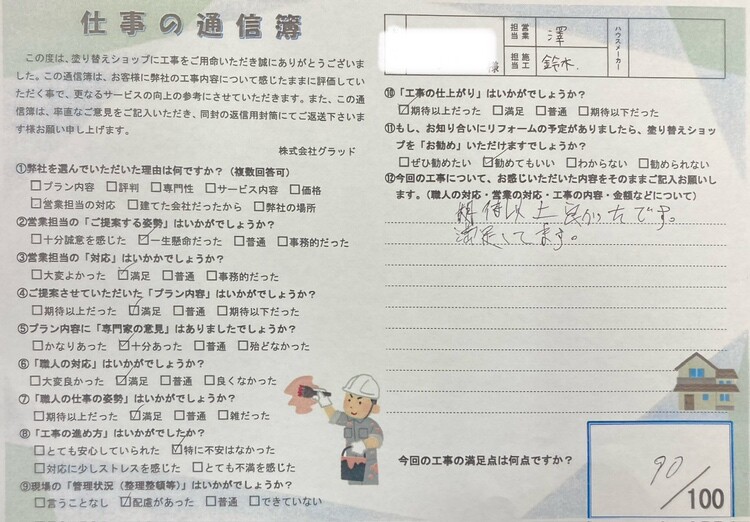 仕事の通信簿
この度は、塗り替えショップに工事をご用命いただき誠にありがとうございま
した。この通信簿は、お客様に弊社の工事内容について感じたままに評価してい
ただく事で、更なるサービスの向上の参考にさせていただきます。また、この通
信簿は、率直なご意見をご記入いただき、同封の返信用封筒にてご返送下さいま
す様お願い申し上げます。
株式会社グラッド
①弊社を選んでいただいた理由は何ですか？（複数回答可）
□プラン内容 □評判 □専門性 □サービス内容 □価格
□営業担当の対応 □建てた会社だったから □弊社の場所
②営業担当の「ご提案する姿勢」はいかがでしょうか？
□十分誠意を感じた ☑一生懸命だった □普通 □事務的だった
③営業担当の「対応」はいかがでしょうか？
□大変よかった ☑満足 □普通 □事務的だった
④ご提案させていただいた「プラン内容」はいかがでしょうか？
□期待以上だった ☑満足 □普通 □期待以下だった
⑤プラン内容に「専門家の意見」はありましたでしょうか？
□かなりあった ☑十分あった □普通 □殆どなかった
⑥「職人の対応」はいかがでしょうか？
□大変良かった ☑満足 □普通 □良くなかった
⑦「職人の仕事の姿勢」はいかがでしょうか？
□期待以上だった ☑満足 □普通 □雑だった
⑧「工事の進め方」はいかがでしたか？
□とても安心していられた ☑特に不安はなかった
□対応に少しストレスを感じた □とても不満を感じた
⑨現場の「管理状況（整理整頓等）」はいかがでしょうか？
□言うことなし ☑配慮があった □普通 □できていない
様
担当営業 澤
担当施工 鈴木.
ハウスメーカー
⑩「工事の仕上がり」はいかがでしょうか？
☑期待以上だった □満足 □普通 □期待以下だった
⑪もし、お知り合いにリフォームの予定がありましたら、塗り替えショッ
プを「お勧め」いただけますでしょうか？
□ぜひ勧めたい ☑勧めてもいい □わからない □勧められない
⑫今回の工事について、お感じいただいた内容をそのままご記入お願いし
ます。（職人の対応・営業の対応・工事の内容・金額などについて）
期待以上良かったです。
満足してます。
今回の工事の満足点は何点ですか？
90/100